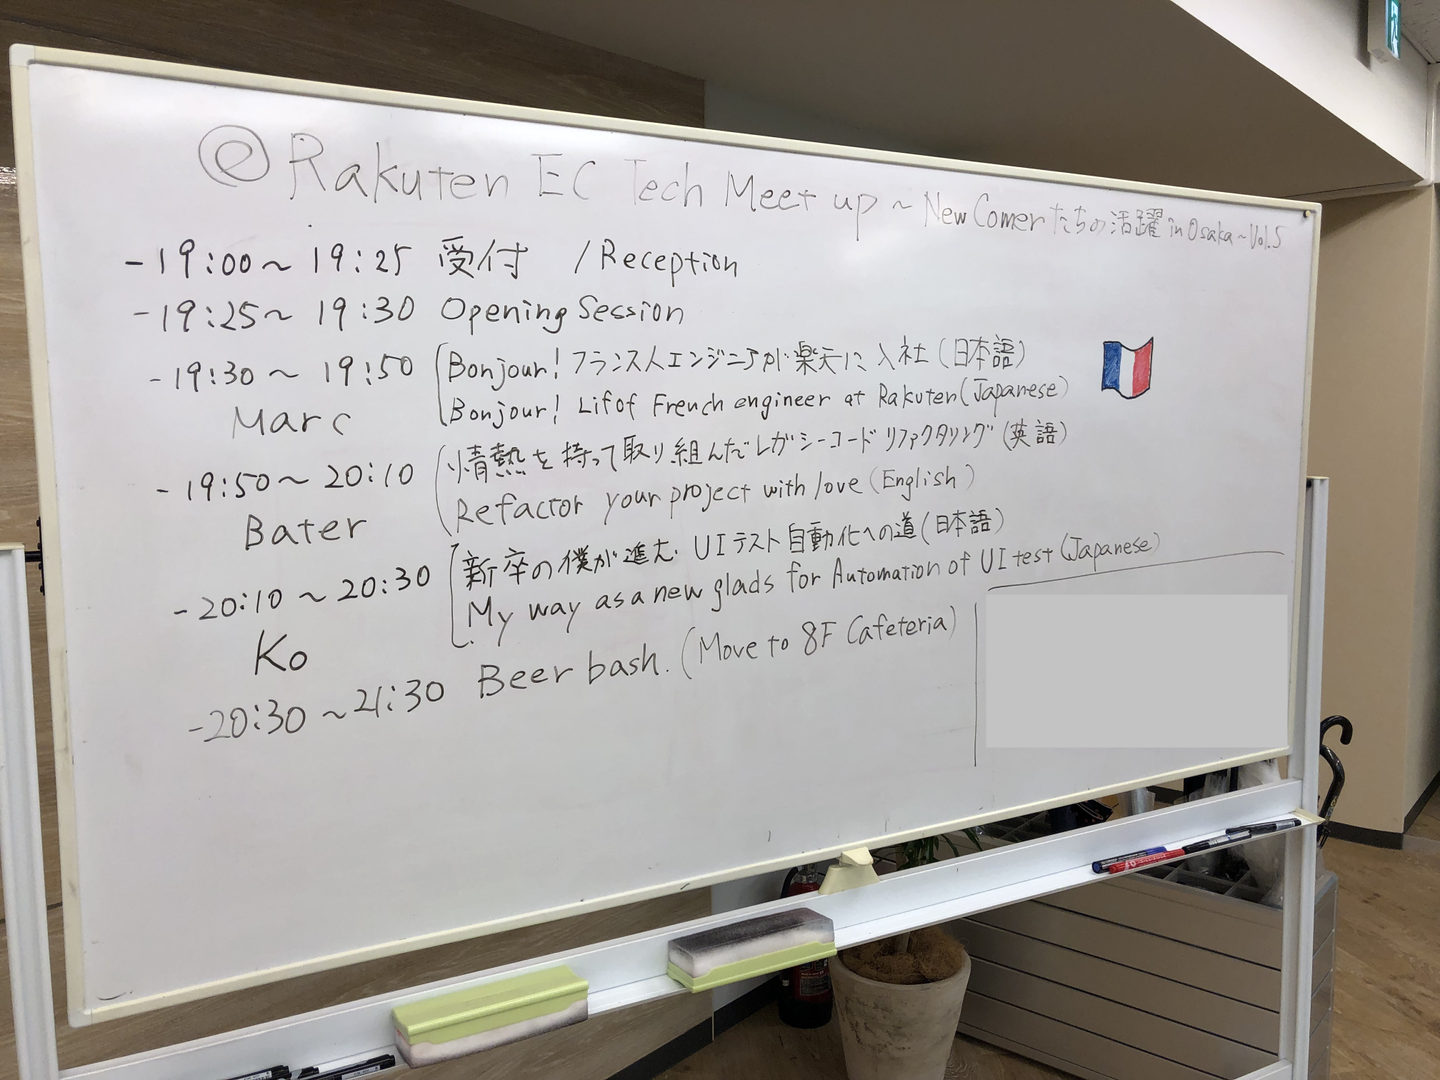 ⓔ Rakuten EC Tech Meet up ~ New Comerたちの活躍 in Osaka ~ Vol.5
- 19:00 ~ 19:25 受付 / Reception
- 19:25 ~ 19:30 Opening Session
- 19:30 ~ 19:50 Bonjour! フランス人エンジニアが楽天に入社 (日本語)
Marc Bonjour! Lifof French engineer at Rakuten (Japanese)
- 19:50 ~ 20:10 情熱を持って取り組んだレガシーコードリファクタリング (英語)
Bater Refactor your project with love (English)
- 20:10 ~ 20:30 新卒の僕が進む UIテスト自動化への道 (日本語)
Ko My way as a new glads for Automation of UI test (Japanese)
- 20:30 ~ 21:30 Beer bash. (Move to 8F Cafeteria)